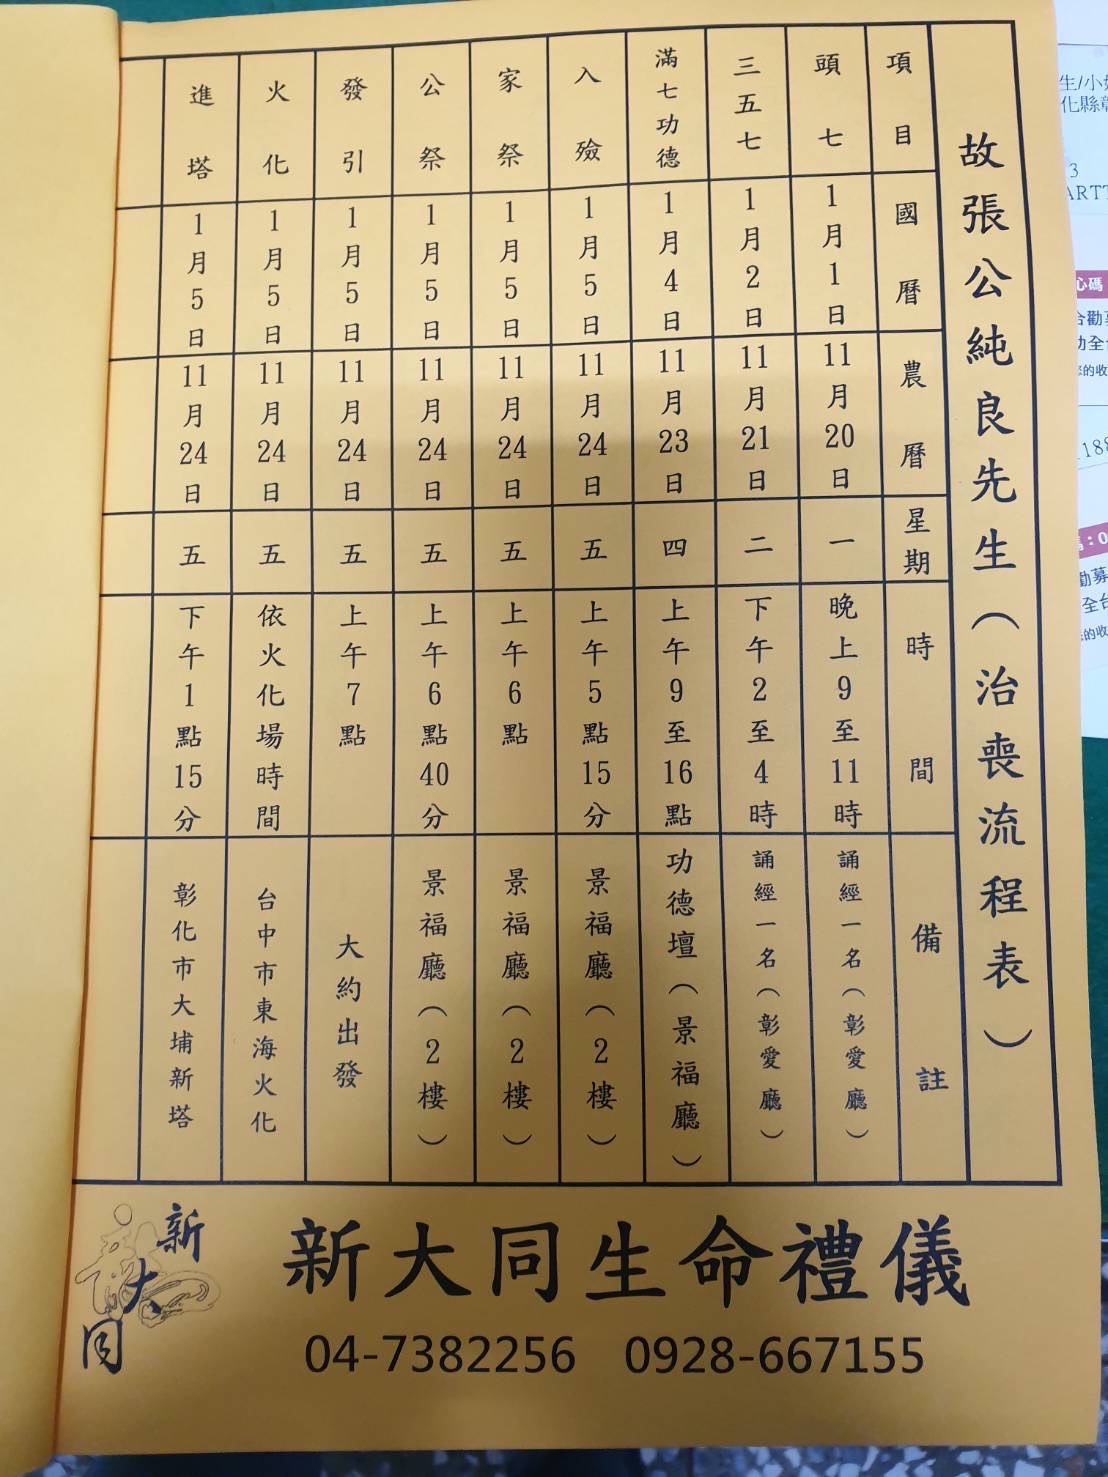 故張公純良先生（治喪流程表）
項目 國曆 農曆 星期 時間 備註
頭七 1月1日 11月20日 一 晚上9至11時 誦經一名（彰愛廳）
三五七 1月2日 11月21日 二 下午2至4時 誦經一名（彰愛廳）
滿七功德 1月4日 11月23日 四 上午9至16點 功德壇（景福廳）
入殮 1月5日 11月24日 五 上午5點15分 景福廳（2樓）
家祭 1月5日 11月24日 五 上午6點 景福廳（2樓）
公祭 1月5日 11月24日 五 上午6點40分 景福廳（2樓）
發引 1月5日 11月24日 五 上午7點 大約出發
火化 1月5日 11月24日 五 依火化場時間 台中市東海火化
進塔 1月5日 11月24日 五 下午1點15分 彰化市大埔新塔
新大同
新大同生命禮儀
04-7382256 0928-667155